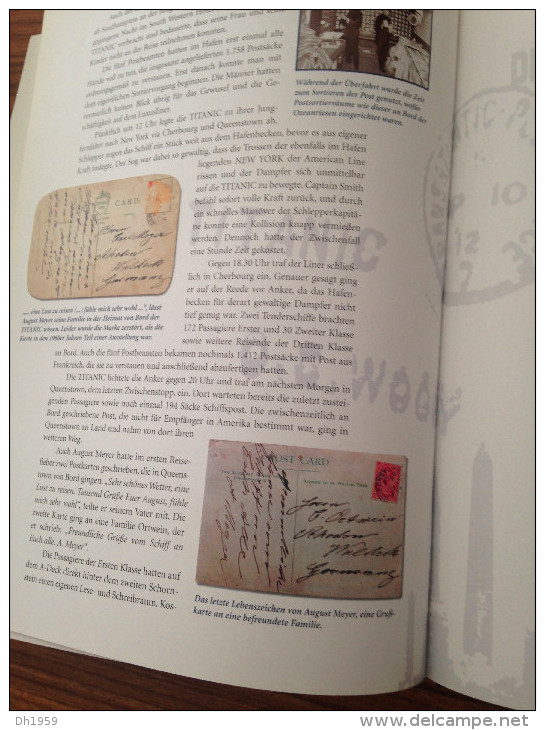 ab Southampton an der
gegangene Nacht im South Western
TITANIC verbracht und bedauerte, dass seine Frau und
Kinder nicht an der Reise teilnehmen konnten.
Die fünf Postbeamten hatten im Hafen erst einmal alle
Hände voll zu tun, die insgesamt angelieferten 1.758 Postsäcke
ordnungsgemäß zu verstauen. Erst danach konnte man mit
dem eigentlichen Sortiervorgang beginnen. Die Männer hatten
vermutlich keinen Blick übrig für das Gewusel und die Ge-
schäftigkeit auf dem Luxusliner.
Pünktlich um 12 Uhr legte die TITANIC zu ihrer Jung-
fernfahrt nach New York via Cherbourg und Queenstown ab.
Schlepper zogen das Schiff ein Stück weit aus dem Hafenbecken, bevor es aus eigener
Kraft loslegte. Der Sog war dabei so gewaltig, dass die Trossen der ebenfalls im Hafen
liegenden NEW YORK der American Line
rissen und der Dampfer sich unmittelbar
auf die TITANIC zu bewegte. Captain Smith
befahl sofort volle Kraft zurück, und durch
ein schnelles Manöver der Schlepperkapitä-
ne konnte eine Kollision knapp vermieden
werden. Dennoch hatte der Zwischenfall
eine Stunde Zeit gekostet.
Gegen 18.30 Uhr traf der Liner schließ-
lich in Cherbourg ein. Genauer gesagt ging
er auf der Reede vor Anker, da das Hafen-
becken für derart gewaltige Dampfer nicht
tief genug war. Zwei Tenderschiffe brachten
172 Passagiere Erster und 30 Zweiter Klasse
sowie weitere Reisende der Dritten Klasse
an Bord. Auch die fünf Postbeamten bekamen nochmals 1.412 Postsäcke mit Post aus
Frankreich, die sie zu verstauen und anschließend abzufertigen hatten.
Die TITANIC lichtete die Anker gegen 20 Uhr und traf am nächsten Morgen in
Queenstown, dem letzten Zwischenstopp, ein. Dort warteten bereits die zuletzt zustei-
genden Passagiere sowie noch einmal 194 Säcke Schiffspost. Die zwischenzeitlich an
Bord geschriebene Post, die nicht für Empfänger in Amerika bestimmt war, ging in
Queenstown so Land und nahm von dort ihren
weiteren Weg.
Auch August Meyer hatte im ersten Reise-
fieber zwei Postkarten geschrieben, die in Queens-
town von Bord gingen. „Sehr schönes Wetter, eine
Lust zu reisen. Tausend Grüße Euer August, fühle
mich sehr wohl", teilte er seinem Vater mit. Die
zweite Karte ging an eine Familie Ortwein, der
er schrieb: „Freundliche Grüße vom Schiff an
Euch alle, A. Meyer".
Die Passagiere der Ersten Klasse hatten auf
dem A-Deck direkt hinter dem zweiten Schorn-
stein einen eigenen Lese- und Schreibraum. Kos-
Während der Überfahrt wurde die Zeit
zum Sortieren der Post genutzt, wofür
Postsortierräume wie dieser an Bord der
Ozeanriesen eingerichtet waren.
CARD
„... eine Lust zu reisen (...) fühle mich sehr wohl ...", lässt
August Meyer seine Familie in der Heimat von Bord der
TITANIC wissen. Leider wurde die Marke zerstört, als die
Karte in den 1960er Jahren Teil einer Ausstellung war.
POST CARD
Herrn
Ortwein
Waldeck
Germany
Das letzte Lebenszeichen von August Meyer, eine Gruß-
karte an eine befreundete Familie.
Dh1959
www.delcampe.net